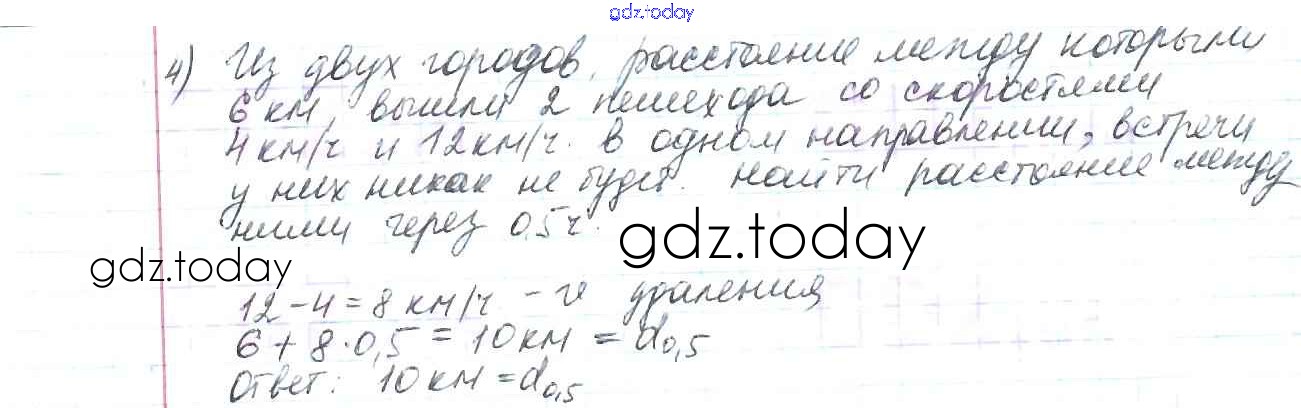 gdz.today
4) Из двух городов, расстояние между которыми
6 км, вышли 2 пешехода со скоростями
4 км/ч и 12 км/ч. в одном направлении, встречи
у них никак не будет. найти расстояние между
ними через 0,5 ч.
gdz.today
gdz.today
12 - 4 = 8 км/ч - ѵ удаления
6 + 8 · 0,5 = 10 км = d0,5
Ответ: 10 км = d0,5